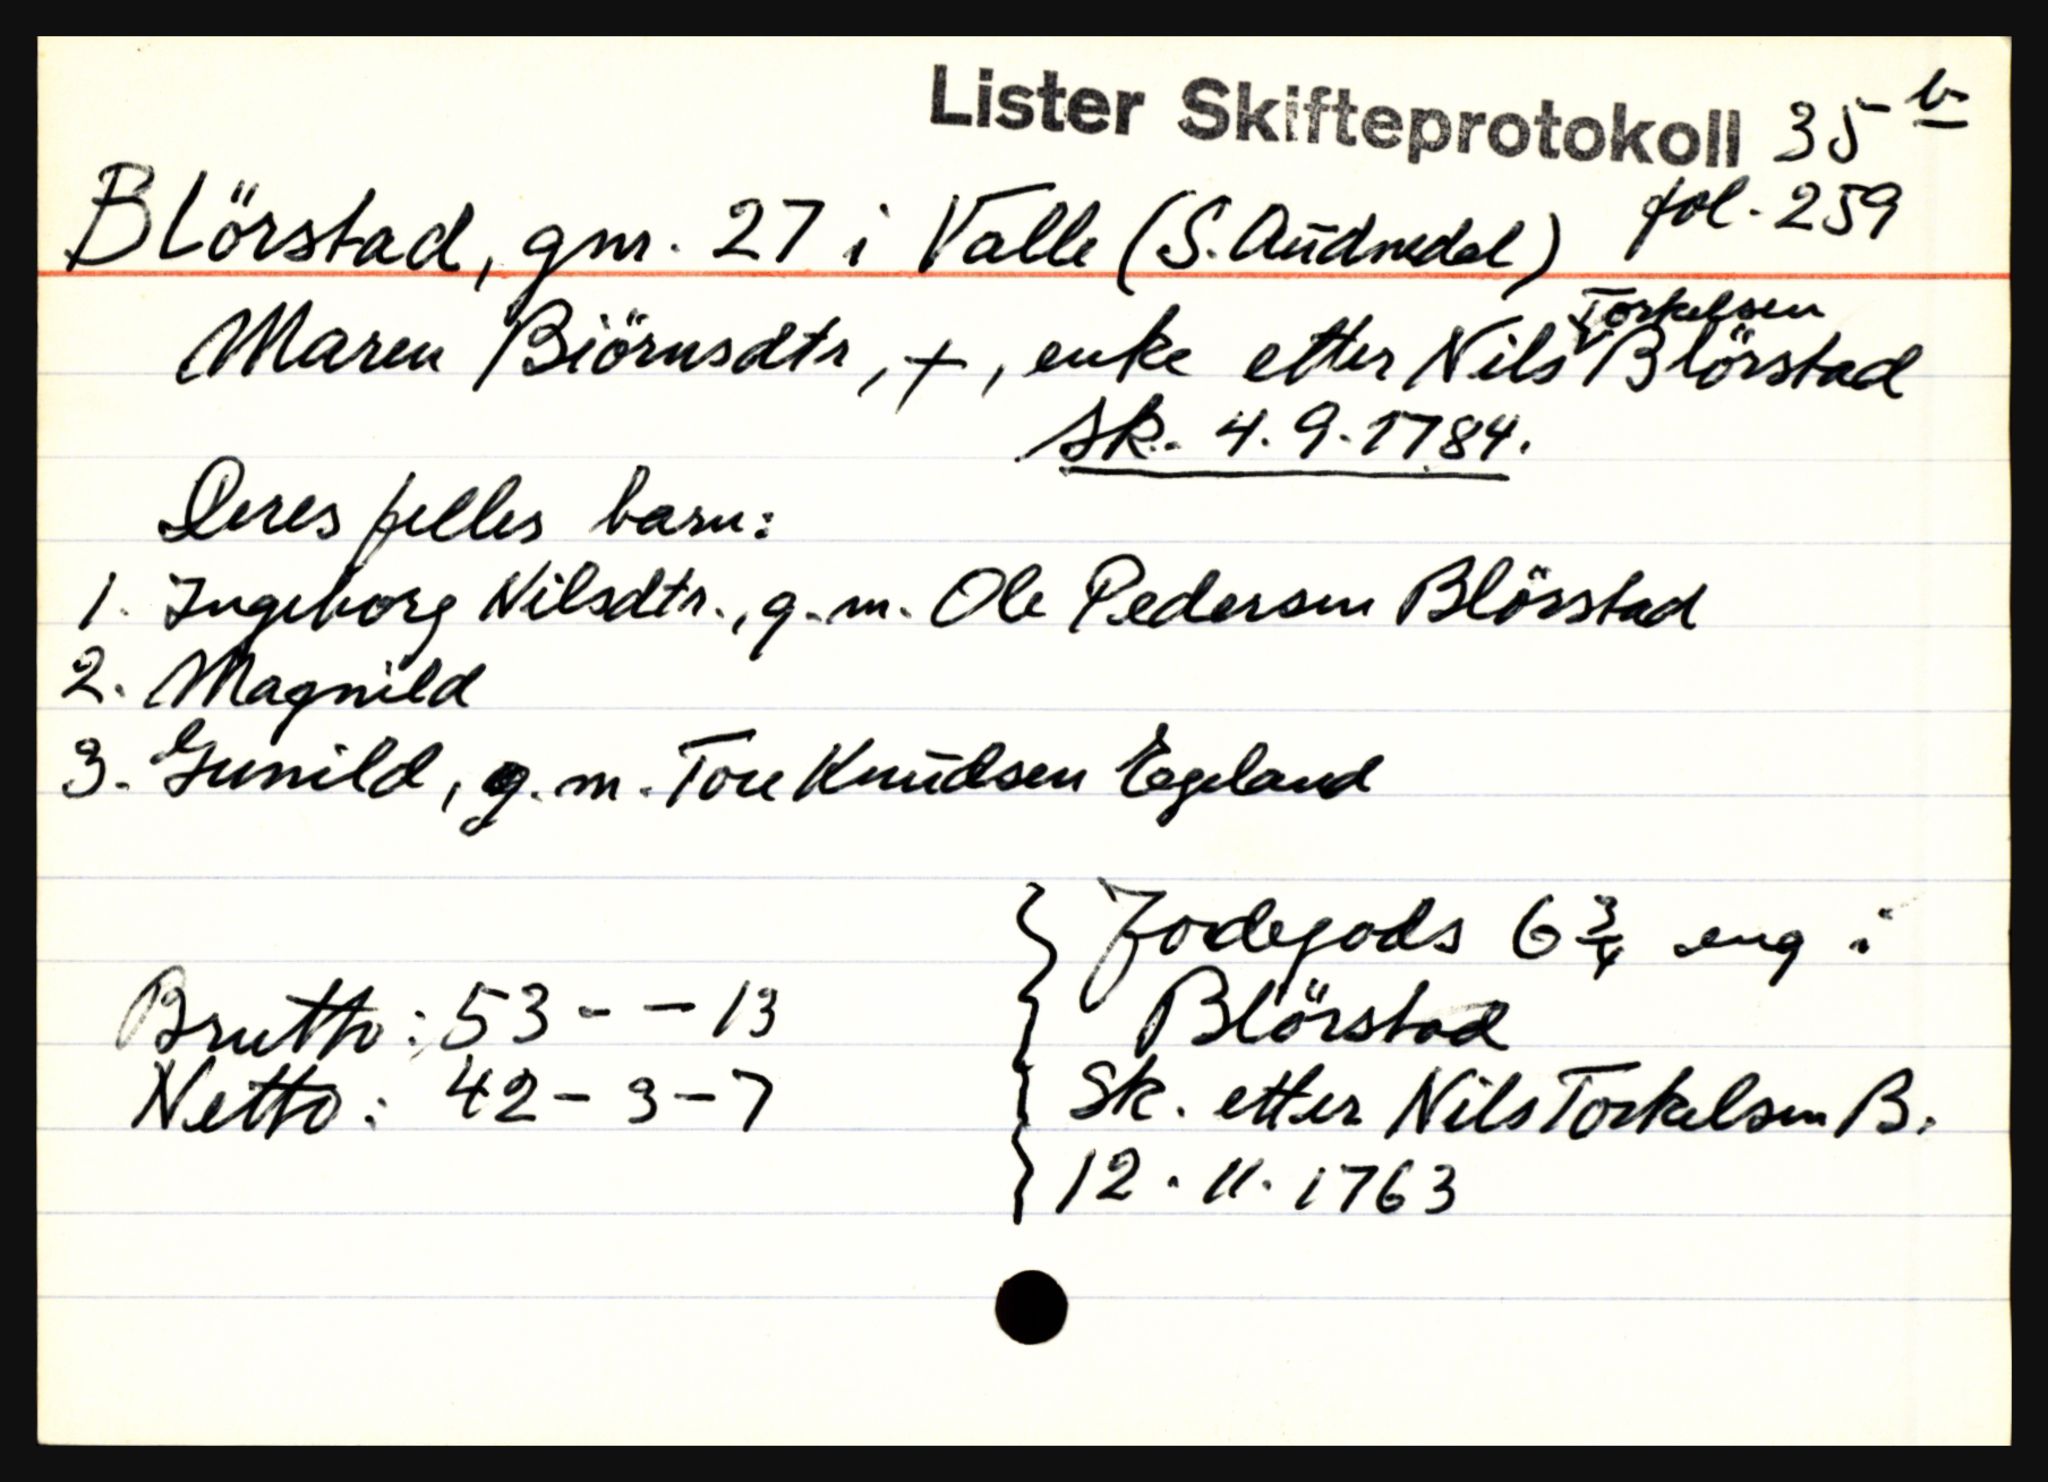 Lister Skifteprotokoll 35 b
fol. 259
Blörstad, gnr. 27 i Valle (S. Audnedal)
Maren Biörnsdtr, +, enke etter Nils Torkelsen Blörstad
Sk. 4.9.1784.
Deres felles barn:
1. Ingeborg Nilsdtr., g.m. Ole Pedersen Blörstad
2. Magnild
3. Gunild, g.m. Tore Knudsen Egeland
Jordegods 6 3/4 eng i
Blörstad
Brutto: 53 - - 13
Netto: 42 - 3 - 7
Sk. etter Nils Torkelsen B.
12.11.1763